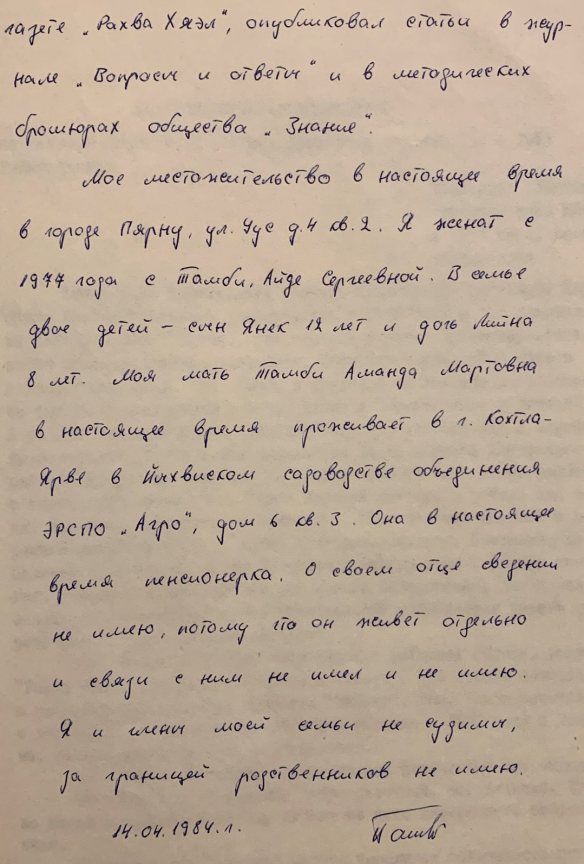 газете „Рахва Хяэл", опубликовал статьи в жур-
нале „Вопросы и ответы" и в методических
брошюрах общества „Знание".
Мое местожительство в настоящее время
в городе Пярну, ул. Уус д.4 кв.2. Я женат с
1977 года с Тамби, Айде Сергеевной. В семье
двое детей – сын Янек 12 лет и дочь Лийна
8 лет. Моя мать Тамби Аманда Мартовна
в настоящее время проживает в г. Кохтла-
Ярве в Йыхвиском садоводстве объединения
ЭРСПО „Агро", дом 6 кв. 3. Она в настоящее
время пенсионерка. О своем отце сведении
не имею, потому что он живет отдельно
и связи с ним не имел и не имею.
Я и члены моей семьи не судимы,
за границей родственников не имею.
14.04.1984.г.